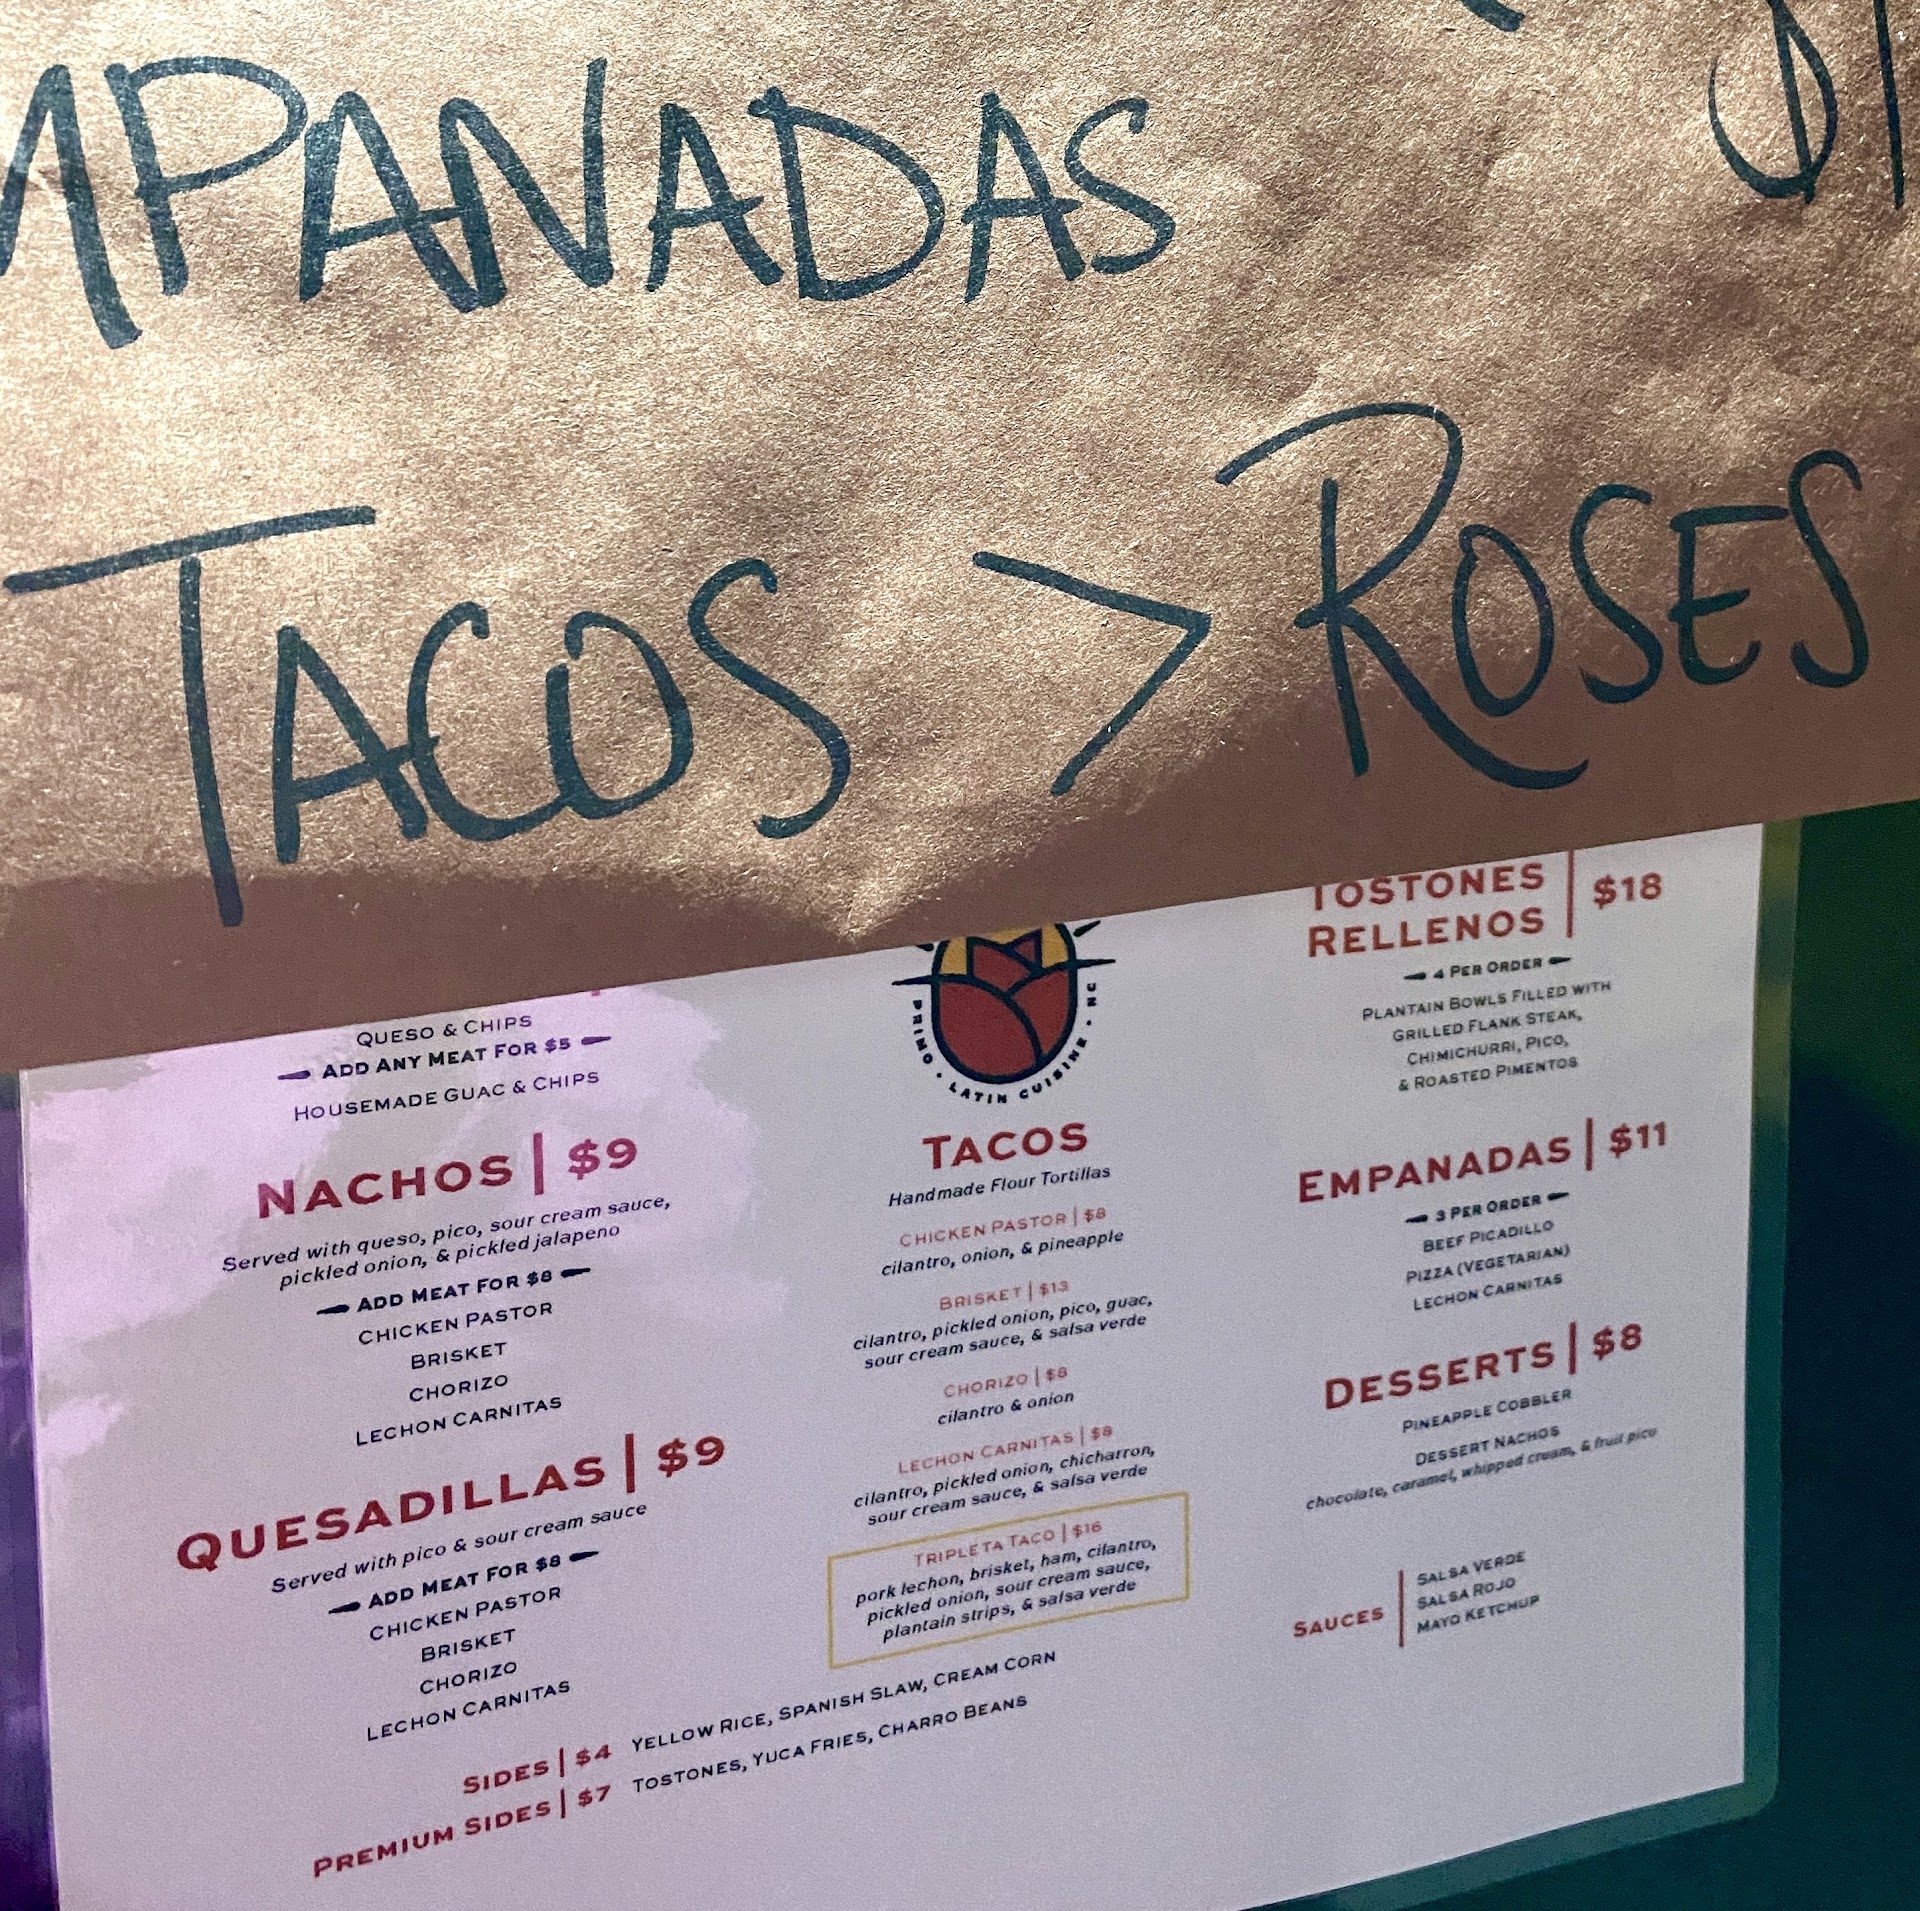 EMPANADAS
TACOS > ROSES
QUESO & CHIPS
ADD ANY MEAT FOR $5
HOUSEMADE GUAC & CHIPS
NACHOS | $9
Served with queso, pico, sour cream sauce,
pickled onion, & pickled jalapeno
ADD MEAT FOR $8
CHICKEN PASTOR
BRISKET
CHORIZO
LECHON CARNITAS
QUESADILLAS | $9
Served with pico & sour cream sauce
ADD MEAT FOR $8
CHICKEN PASTOR
BRISKET
CHORIZO
LECHON CARNITAS
PRIMO • LATIN CUISINE • NC
TACOS
Handmade Flour Tortillas
CHICKEN PASTOR | $8
cilantro, onion, & pineapple
BRISKET | $13
cilantro, pickled onion, pico, guac,
sour cream sauce, & salsa verde
CHORIZO | $8
cilantro & onion
LECHON CARNITAS | $8
cilantro, pickled onion, chicharron,
sour cream sauce, & salsa verde
TRIPLETA TACO | $16
pork lechon, brisket, ham, cilantro,
pickled onion, sour cream sauce,
plantain strips, & salsa verde
TOSTONES
RELLENOS | $18
4 PER ORDER
PLANTAIN BOWLS FILLED WITH
GRILLED FLANK STEAK,
CHIMICHURRI, PICO,
& ROASTED PIMENTOS
EMPANADAS | $11
3 PER ORDER
BEEF PICADILLO
PIZZA (VEGETARIAN)
LECHON CARNITAS
DESSERTS | $8
PINEAPPLE COBBLER
DESSERT NACHOS
chocolate, caramel, whipped cream, & fruit pico
SAUCES
SALSA VERDE
SALSA ROJO
MAYO KETCHUP
SIDES | $4 YELLOW RICE, SPANISH SLAW, CREAM CORN
PREMIUM SIDES | $7 TOSTONES, YUCA FRIES, CHARRO BEANS